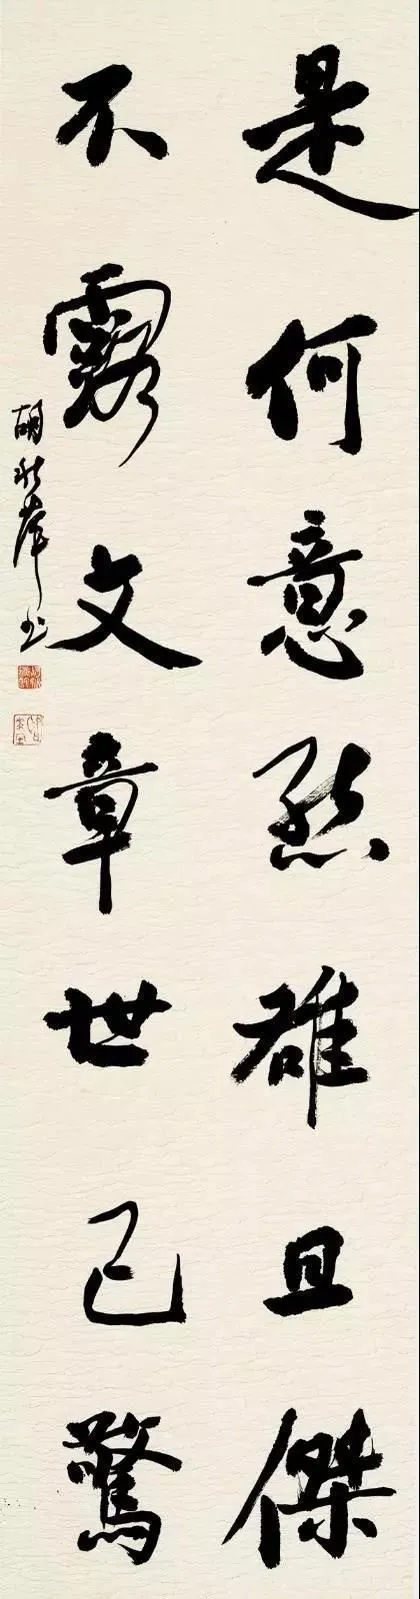 是何意態雄且傑
不露文章世已驚
胡秋萍书